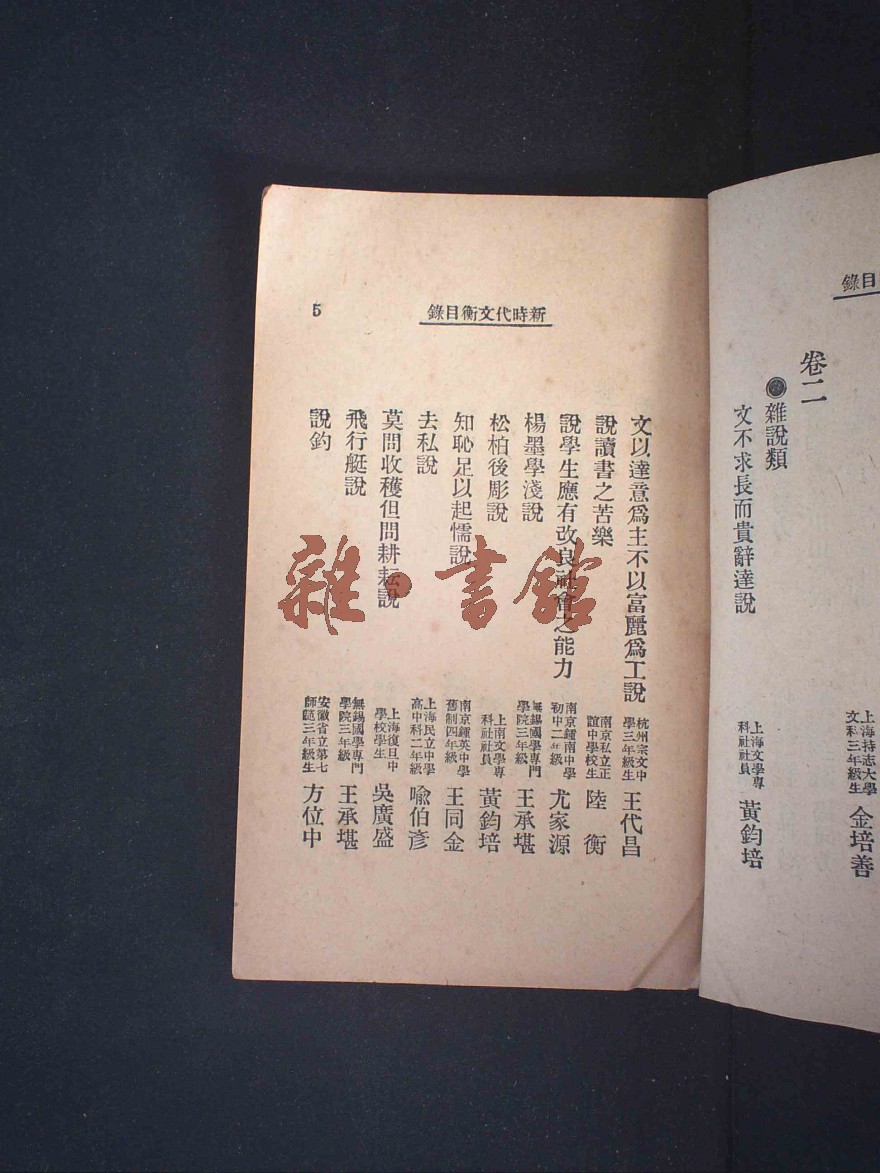 錄目
上海持志大學文科三年級生 金培善
卷二
雜說類
文不求長而貴辭達說 上海文學專科社社員 黃鈞培
新時代文衡目錄
5
文以達意爲主不以富麗爲工說 杭州宗文中學三年級生 王代昌
說讀書之苦樂 南京私立正誼中學校生 陸衡
說學生應有改良社會之能力 南京鍾南中學初中二年級 尤家源
楊墨學淺說 無錫國學專門學院三年級 王承堪
松柏後彫說 上南文學專科社社員 黃鈞培
知恥足以起懦說 南京鍾英中學舊制四年級 王同金
去私說 上海民立中學高中科二年級 喩伯彥
莫問收穫但問耕耘說 上海復旦中學校學生 吳廣盛
飛行艇說 無錫國學專門學院三年級 王承堪
說鈞 安徽省立第七師範三年級生 方位中
雜·書館